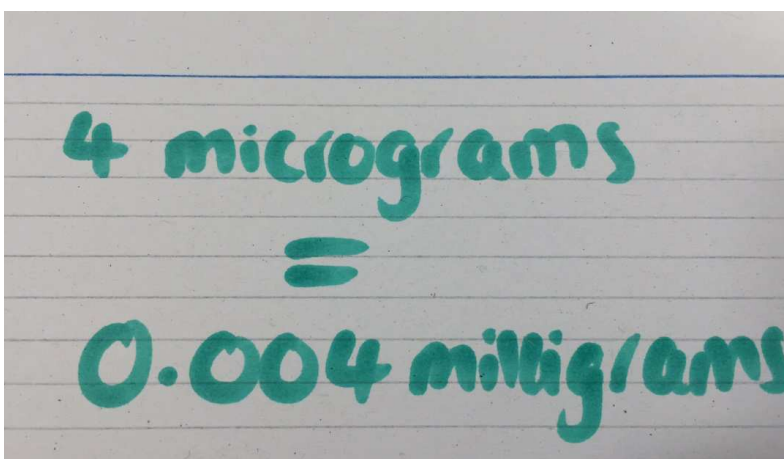 4 micrograms
=
0.004 milligrams